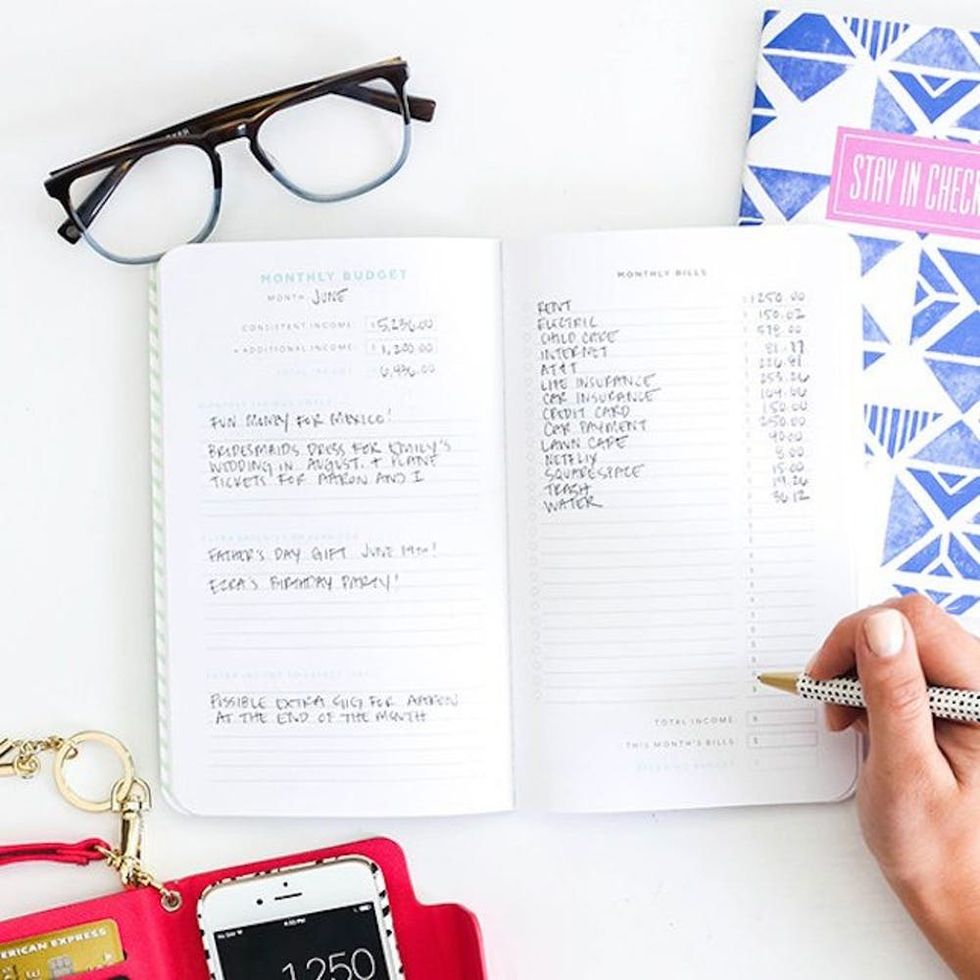 STAY IN CHECK
MONTHLY BUDGET
MONTH: JUNE
CONSISTENT INCOME: $5,236.00
+ ADDITIONAL INCOME: $1,200.00
TOTAL INCOME: 6,436.00
FUN MONEY FOR MEXICO!
BRIDESMAIDS DRESS FOR EMILY'S
WEDDING IN AUGUST. + PLANE
TICKETS FOR AARON AND I
FATHER'S DAY GIFT JUNE 19TH!
EZRA'S BIRTHDAY PARTY!
POSSIBLE EXTRA GIG FOR AARON
AT THE END OF THE MONTH
MONTHLY BILLS
RENT $1250.00
ELECTRIC 150.02
CHILD CARE
INTERNET
AT&T
LIFE INSURANCE
CAR INSURANCE
CREDIT CARD 150.00
CAR PAYMENT 250.00
LAWN CARE
NETFLIX 8.00
SQUARESPACE 15.00
TRASH 19.26
WATER 36.12
TOTAL INCOME: $
THIS MONTH'S BILLS: $
ERICAN EXPRESS
1250